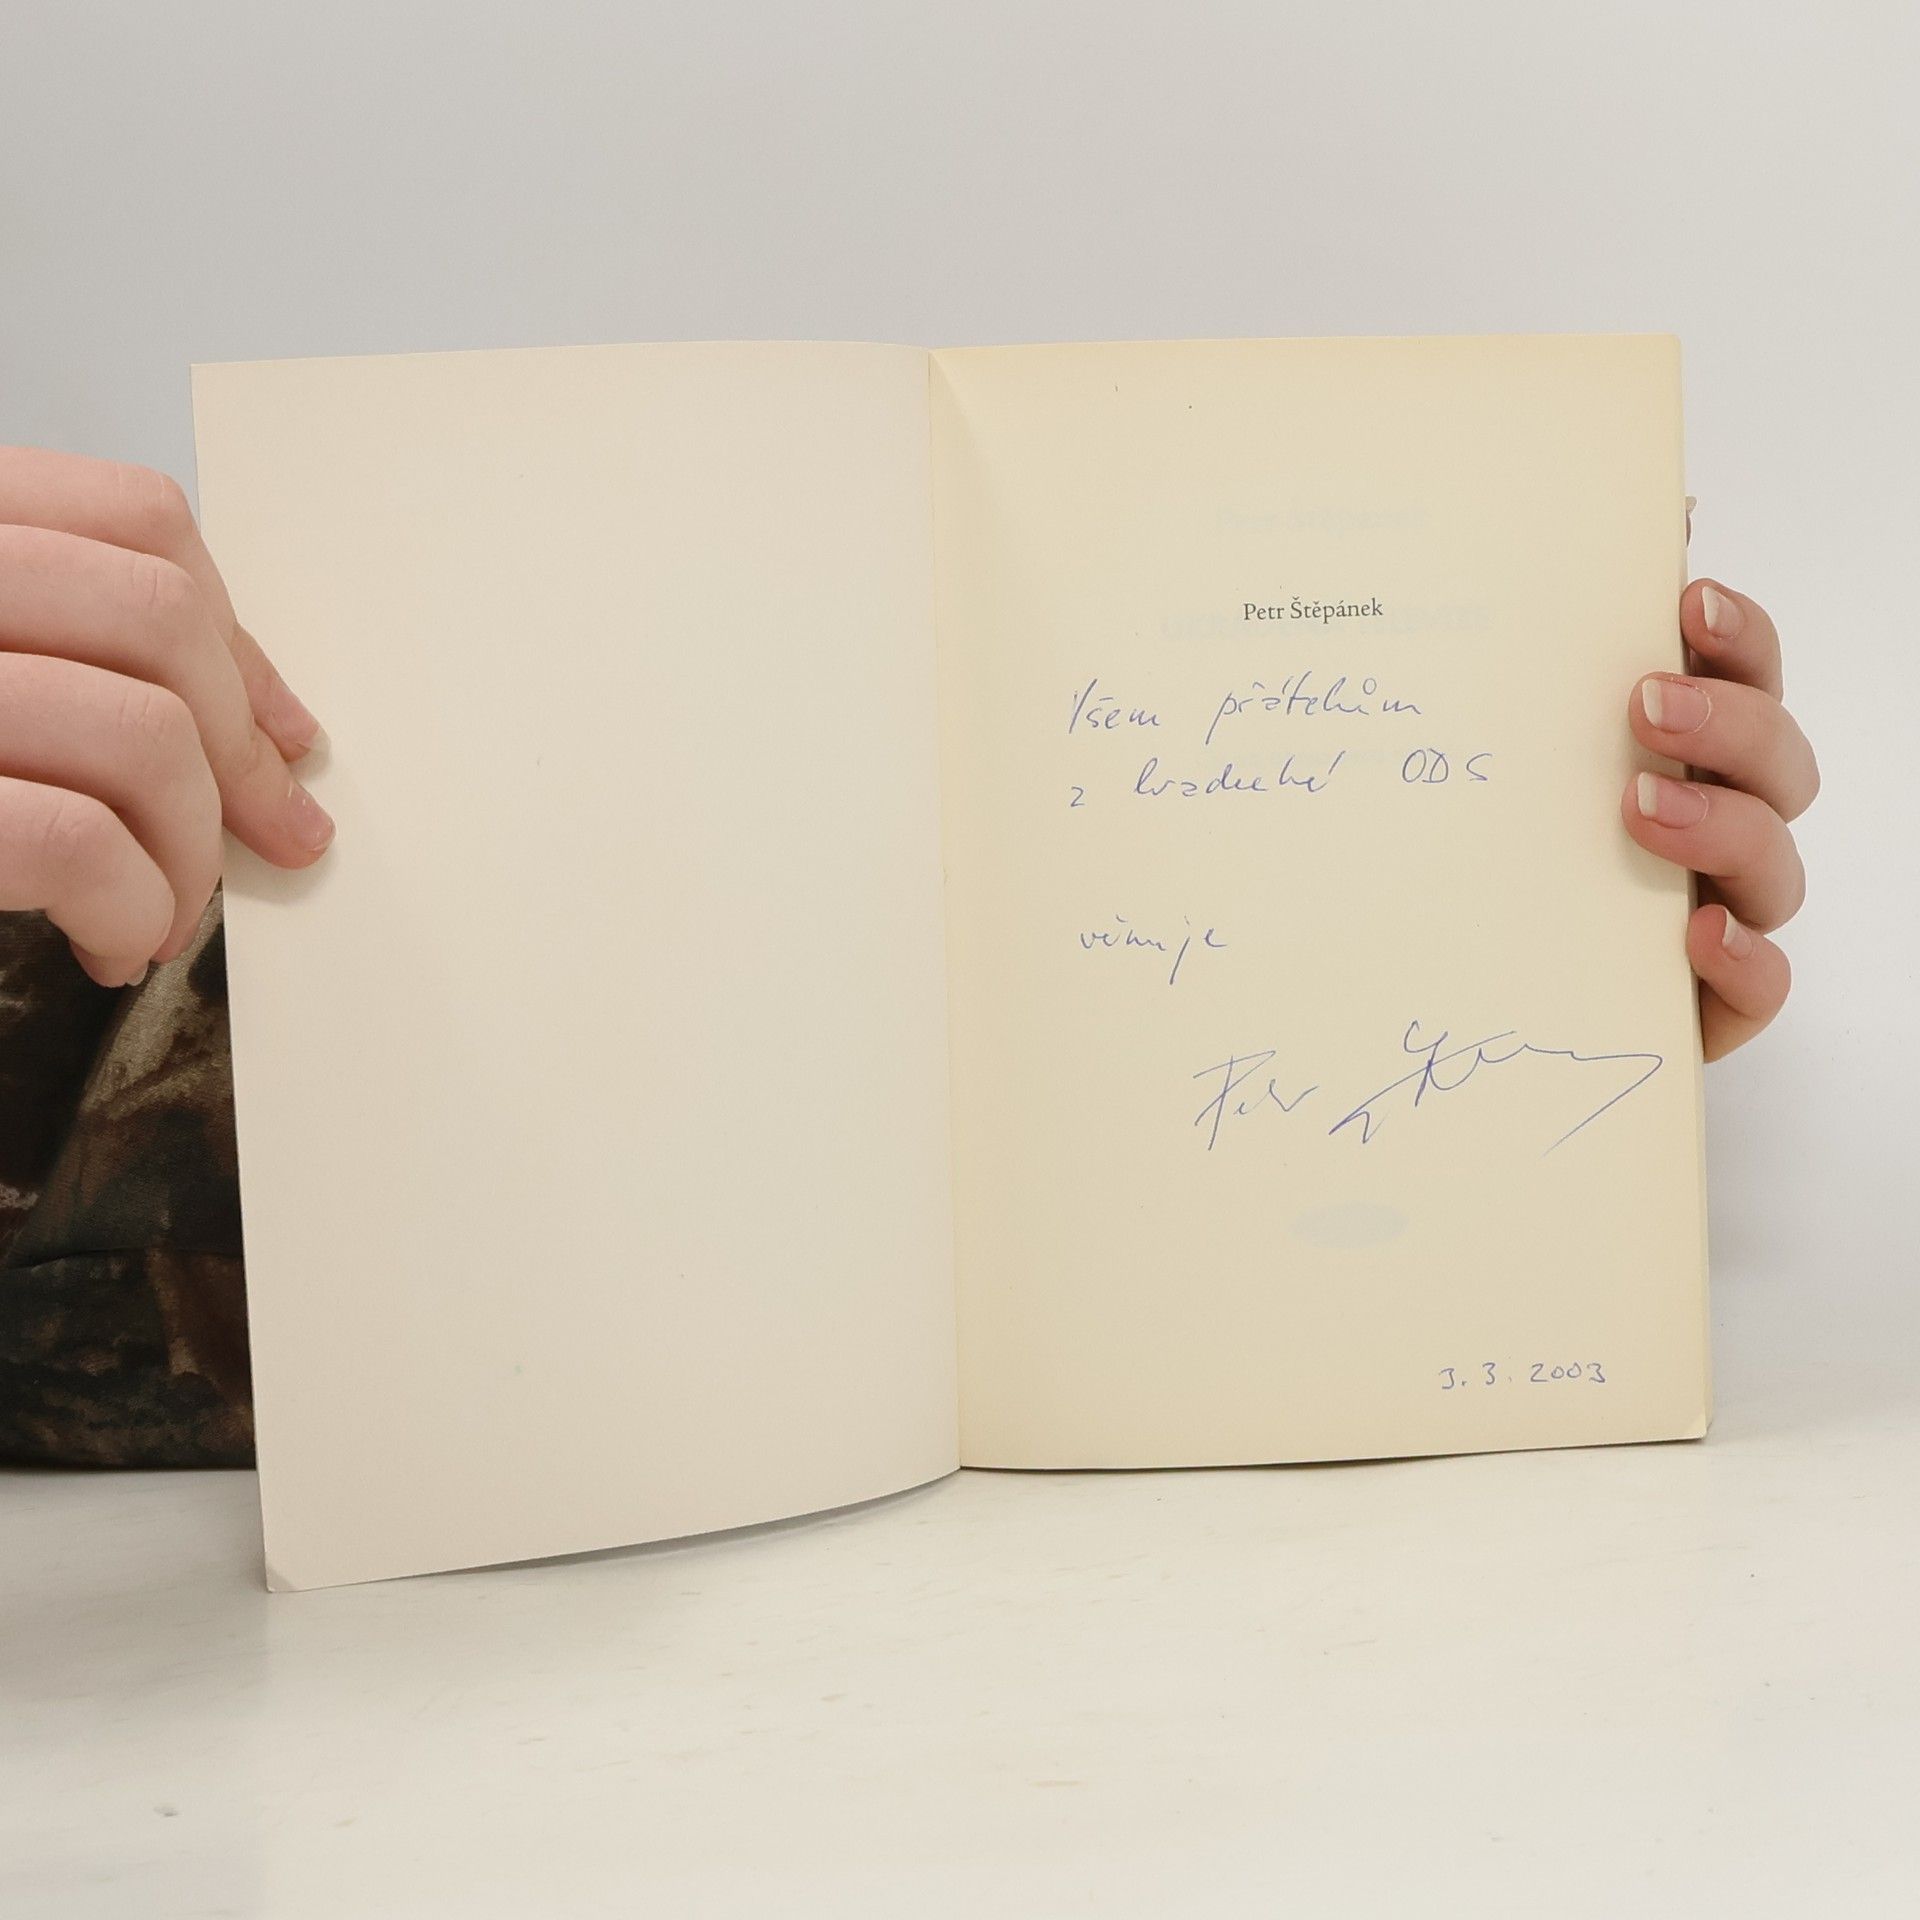 Petr Štěpánek
Všem přátelům
z hradecké ODS
věnuje
Petr
3. 3. 2003